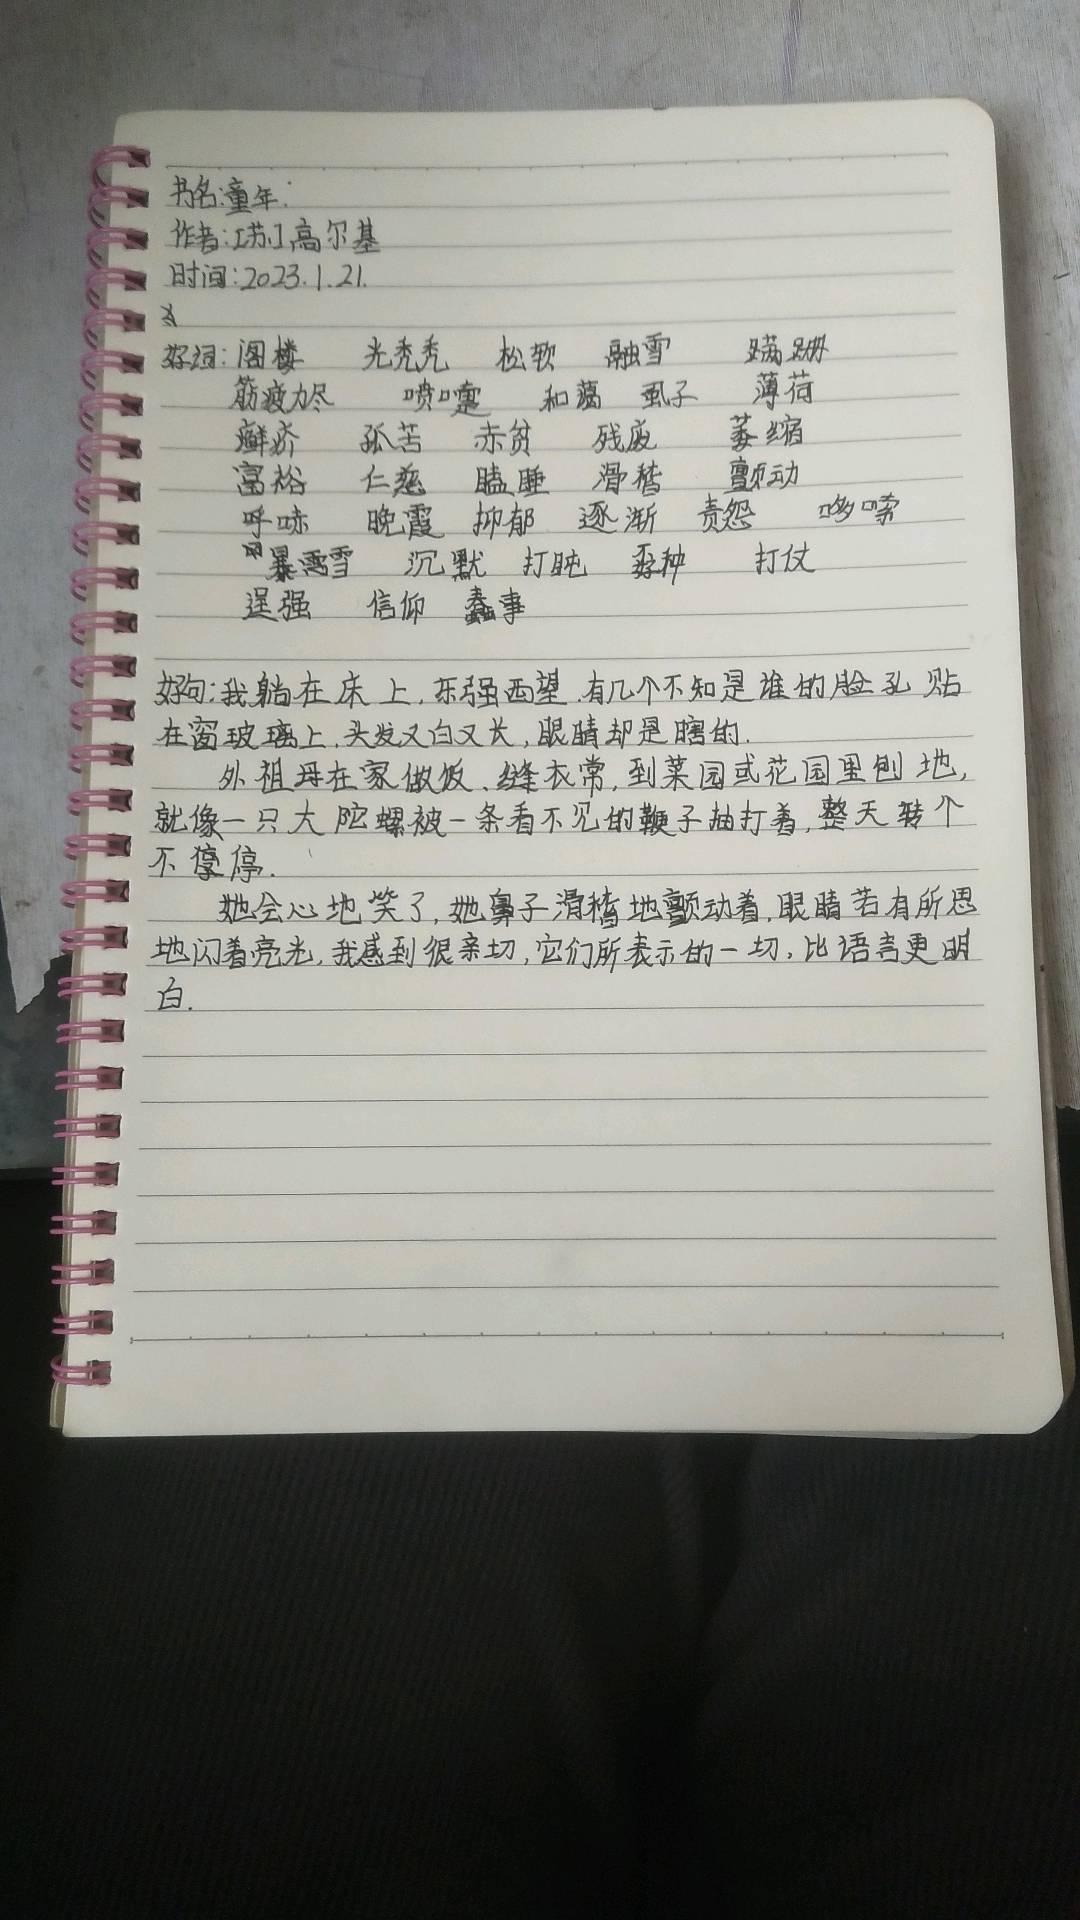 书名:童年:
作者:[苏]高尔基
时间:2023.1.21.
好词:阁楼 光秃秃 松软 融雪 蹒跚
筋疲力尽 喷嚏 和蔼 虱子 薄荷
癣疥 孤苦 赤贫 残废 萎缩
富裕 仁慈 瞌睡 滑稽 颤动
呼哧 晚霞 抑郁 逐渐 责怨 哆嗦
暴雪 沉默 打盹 孬种 打仗
逞强 信仰 蠢事
好句:我躺在床上,东张西望.有几个不知是谁的脸孔贴
在窗玻璃上,头发又白又长,眼睛却是瞎的.
外祖母在家做饭、缝衣常,到菜园或花园里刨地,
就像一只大陀螺被一条看不见的鞭子抽打着,整天转个
不停.
她会心地笑了,她鼻子滑稽地颤动着,眼睛若有所思
地闪着亮光,我感到很亲切,它们所表示的一切,比语言更明
白.